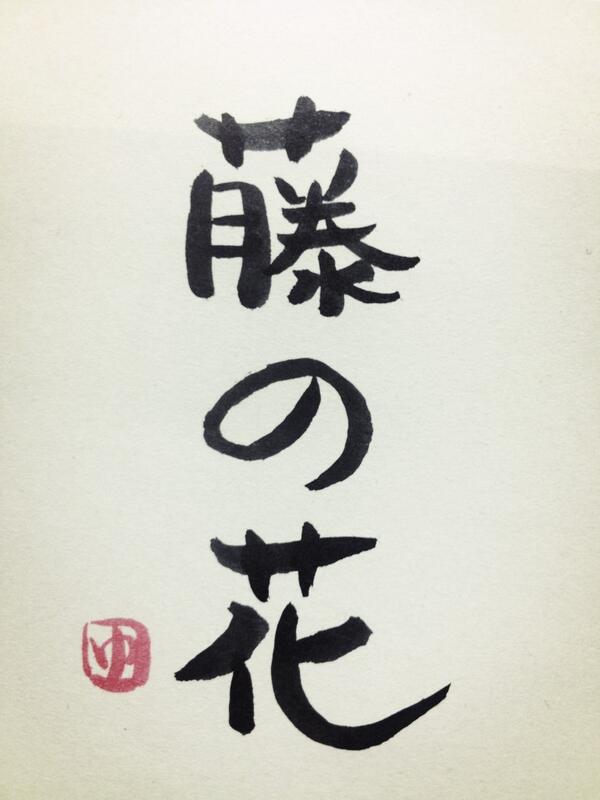 藤の花
ゆ